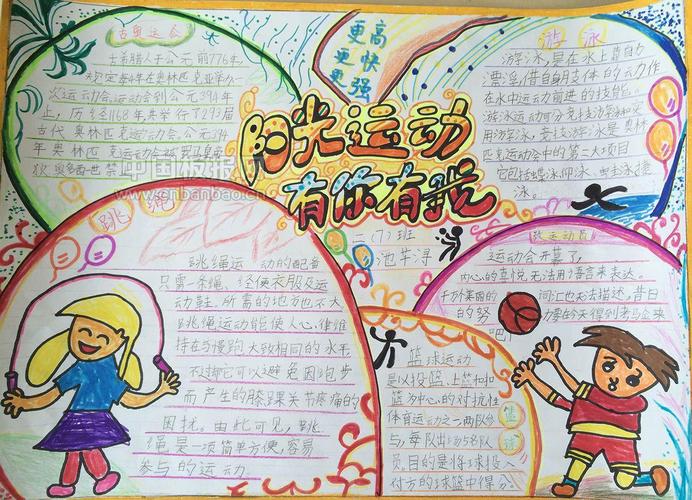 古奥运会
古希腊人于公元前776年
规定每4年在奥林匹克举办一
次运动会运动会到公元394年
止，历经1168年共举行了293届
古代奥林匹克运动会公元394
中国板报网
www.cnbanbao.cn
更高
更快
更强
阳光运动
有你有我
二(7)班
池芊浔
游泳
游泳，是在水上靠自
漂浮，借自身肢体的动作
在水中运动前进的技能。
用游泳，竞技游泳是奥林
匹克运动会中的第二大项目
泳。
跳绳
跳绳运动的配备
只需一条绳，轻便衣服及运
动鞋，所需的地方也不大
跳绳运动能使人心律维
持在与慢跑大致相同的水平
不过它可以避免因跑步
而产生的膝踝关节疼痛的
困扰。由此可见，跳
绳是一项简单方便，容易
参与的运动。
致运动员
运动会开幕了，
内心的喜悦无法用语言来表达。
千万美丽的词汇也无法描述，昔日
的努力
吧！
篮球
篮球运动
是以投篮、上篮和扣
篮为中心的对抗性
体育运动之一两队参
与，每队出场5名队
员。目的是将球投入
对方的球篮中得分